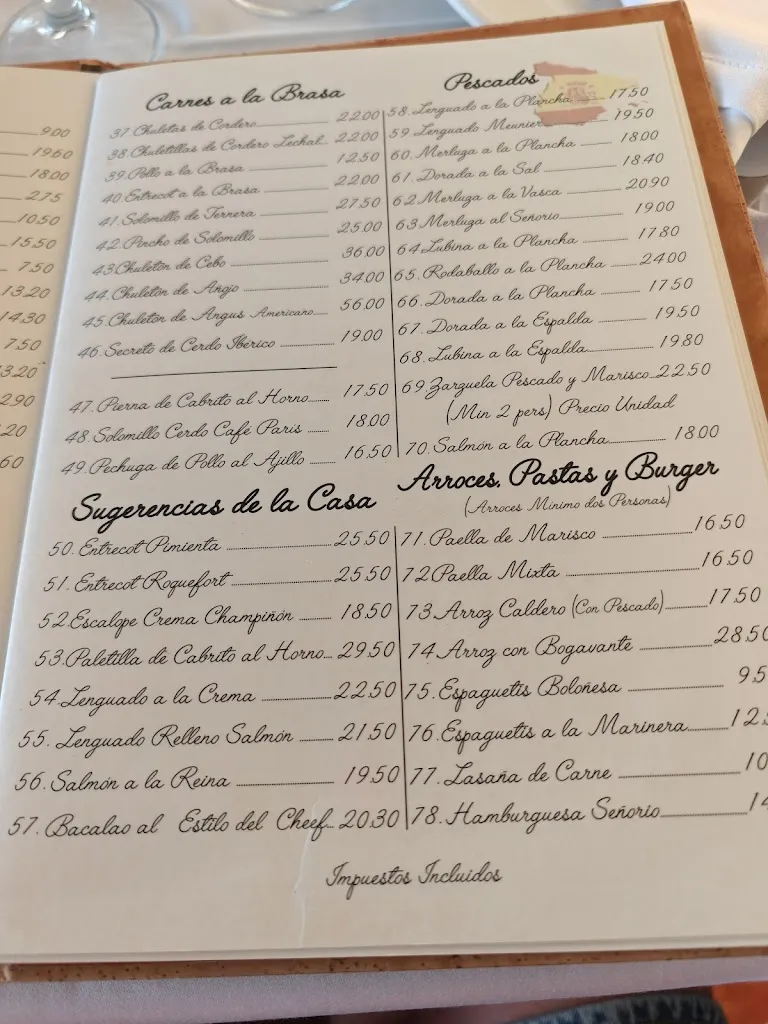 9.00
19.60
18.00
2.75
10.50
15.50
7.50
13.20
14.30
7.50
3.20
2.90
.20
60
Carnes a la Brasa
37. Chuletas de Cordero 22.00
38 Chuletillas de Cordero Lechal 22.00
39. Pollo a la Brasa 12.50
40. Entrecot a la Brasa 22.00
41. Solomillo de Ternera 27.50
42. Pincho de Solomillo 25.00
43. Chuletón de Cebo 36.00
44. Chuletón de Añojo 34.00
45. Chuletón de Angus Americano 56.00
46. Secreto de Cerdo Ibérico 19.00
47. Pierna de Cabrito al Horno 17.50
48. Solomillo Cerdo Café Paris 18.00
49. Pechuga de Pollo al Ajillo 16.50
Sugerencias de la Casa
50. Entrecot Pimienta 25.50
51. Entrecot Roquefort 25.50
52. Escalope Crema Champiñón 18.50
53. Paletilla de Cabrito al Horno 29.50
54. Lenguado a la Crema 22.50
55. Lenguado Relleno Salmón 21.50
56. Salmón a la Reina 19.50
57. Bacalao al Estilo del Cheef 20.30
Pescados
58. Lenguado a la Plancha 17.50
59. Lenguado Meunier 19.50
60. Merluza a la Plancha 18.00
61. Dorada a la Sal 18.40
62. Merluza a la Vasca 20.90
63. Merluza al Señorio 19.00
64. Lubina a la Plancha 17.80
65. Rodaballo a la Plancha 24.00
66. Dorada a la Plancha 17.50
67. Dorada a la Espalda 19.50
68. Lubina a la Espalda 19.80
69. Zarzuela Pescado y Marisco 22.50
(Min 2 pers) Precio Unidad
70. Salmón a la Plancha 18.00
Arroces, Pastas y Burger
(Arroces Mínimo dos Personas)
71. Paella de Marisco 16.50
72 Paella Mixta 16.50
73. Arroz Caldero (Con Pescado) 17.50
74. Arroz con Bogavante 28.50
75. Espaguetis Boloñesa 9.5
76. Espaguetis a la Marinera 12.
77. Lasaña de Carne 10
78. Hamburguesa Señorio 14
Impuestos Incluidos